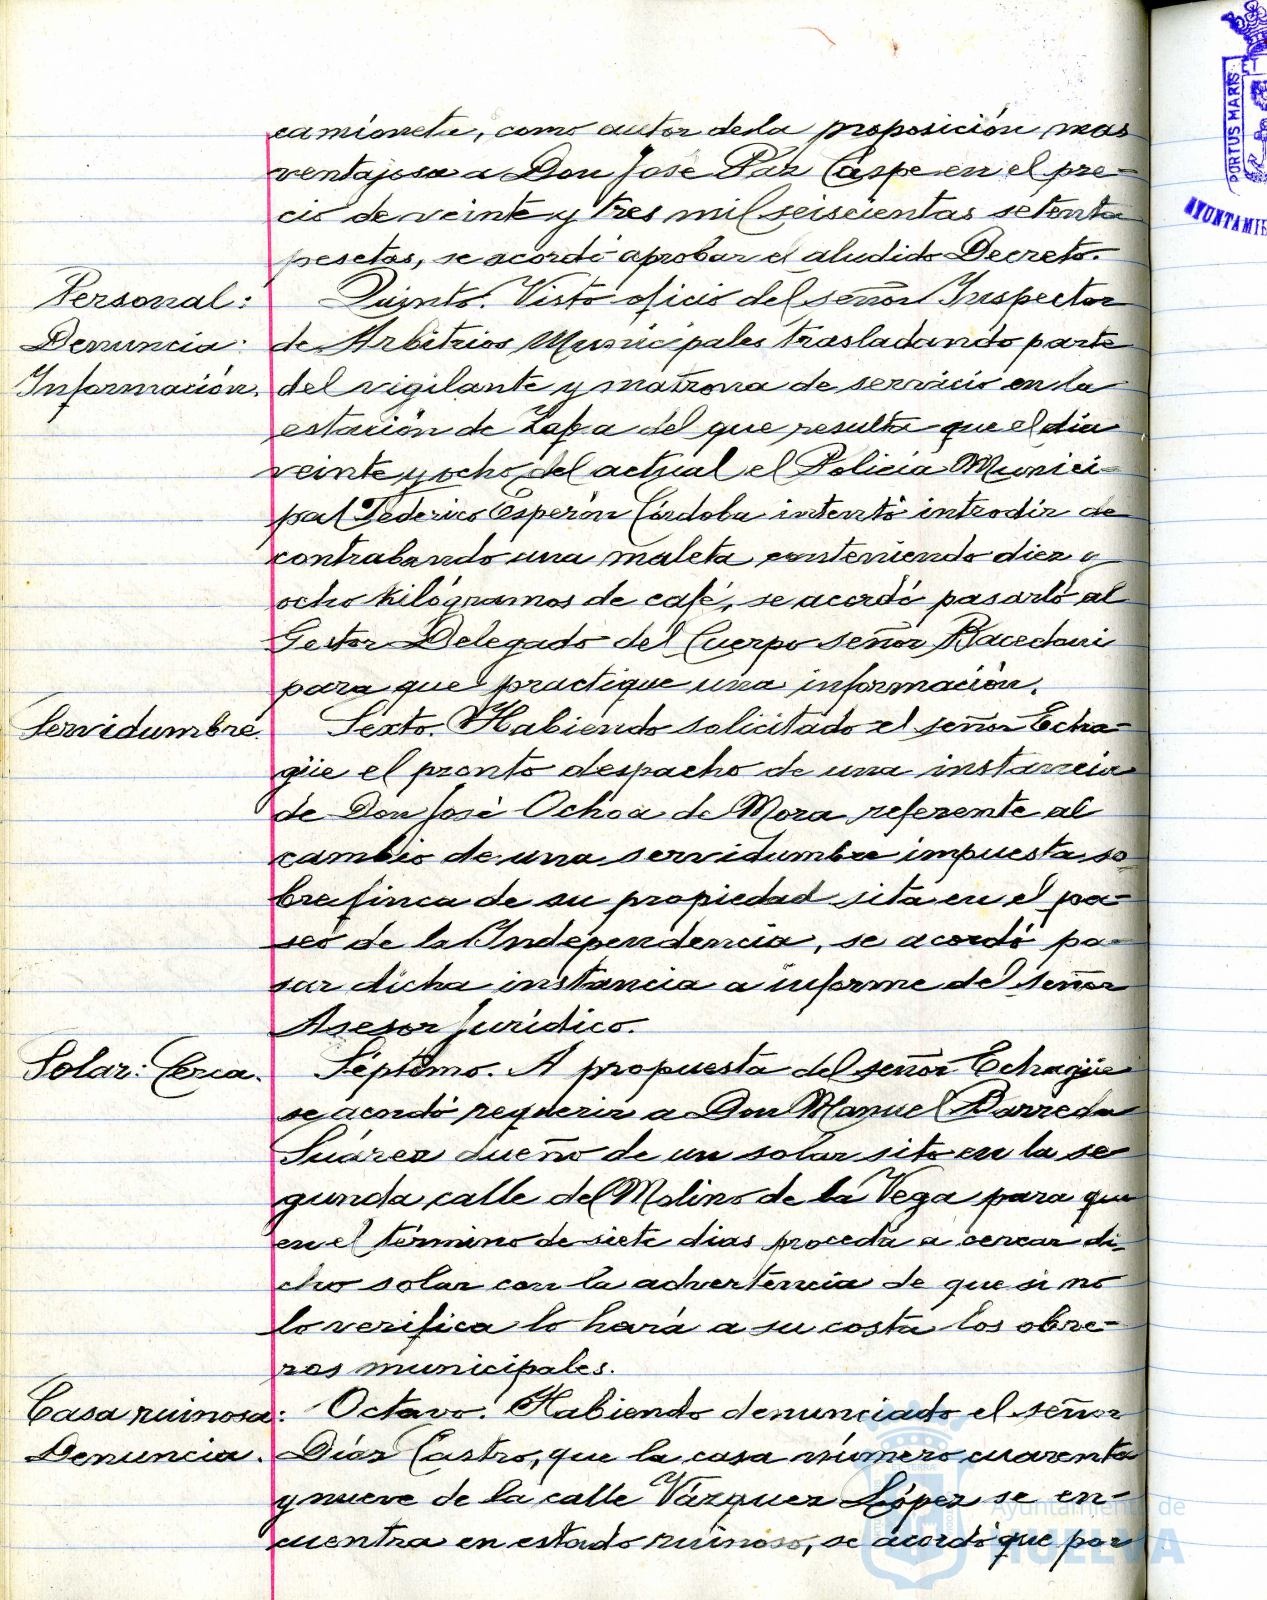 camioneta, como autor de la proposición mas
ventajosa a Don José Paz Caspe en el pre-
cio de veinte y tres mil seiscientas setenta
pesetas, se acordó aprobar el aludido Decreto.
Personal:
Denuncia:
Información.
Quinto. Visto oficio del señor Inspector
de Arbitrios Municipales trasladando parte
del vigilante y matrona de servicio en la
estación de Zafra del que resulta que el dia
veinte y ocho del actual el Policía Munici-
pal Federico Esperón Córdoba intentó introdir de
contrabando una maleta conteniendo diez y
ocho kilógramos de café, se acordó pasarló al
Gestor Delegado del Cuerpo señor
para que practique una información.
Servidumbre.
Sexto. Habiendo solicitado el señor Echa-
güe el pronto despacho de una instancia
de Don José Ochoa de Mora referente al
cambio de una servidumbre impuesta so-
bre finca de su propiedad sita en el pa-
seo de la Independencia, se acordó pa-
sar dicha instancia a informe del señor
Asesor Jurídico.
Solar: Cerca.
Séptimo. A propuesta del señor Echagüe
se acordó requerir a Don Manuel Barreda
Suárez dueño de un solar sito en la se
gunda calle del Molino de la Vega para que
en el término de siete dias proceda a cercar di-
cho solar con la advertencia de que si no
lo verifica lo hará a su costa los obre-
ros municipales.
Casa ruinosa:
Denuncia.
Octavo. Habiendo denunciado el señor
Díaz Castro, que la casa número cuarenta
y nueve de la calle Vázquez López se en-
cuentra en estado ruinoso, se acordó que por
PORTUS MARIS
AYUNTAMIE
Ayuntamiento de
HUELVA